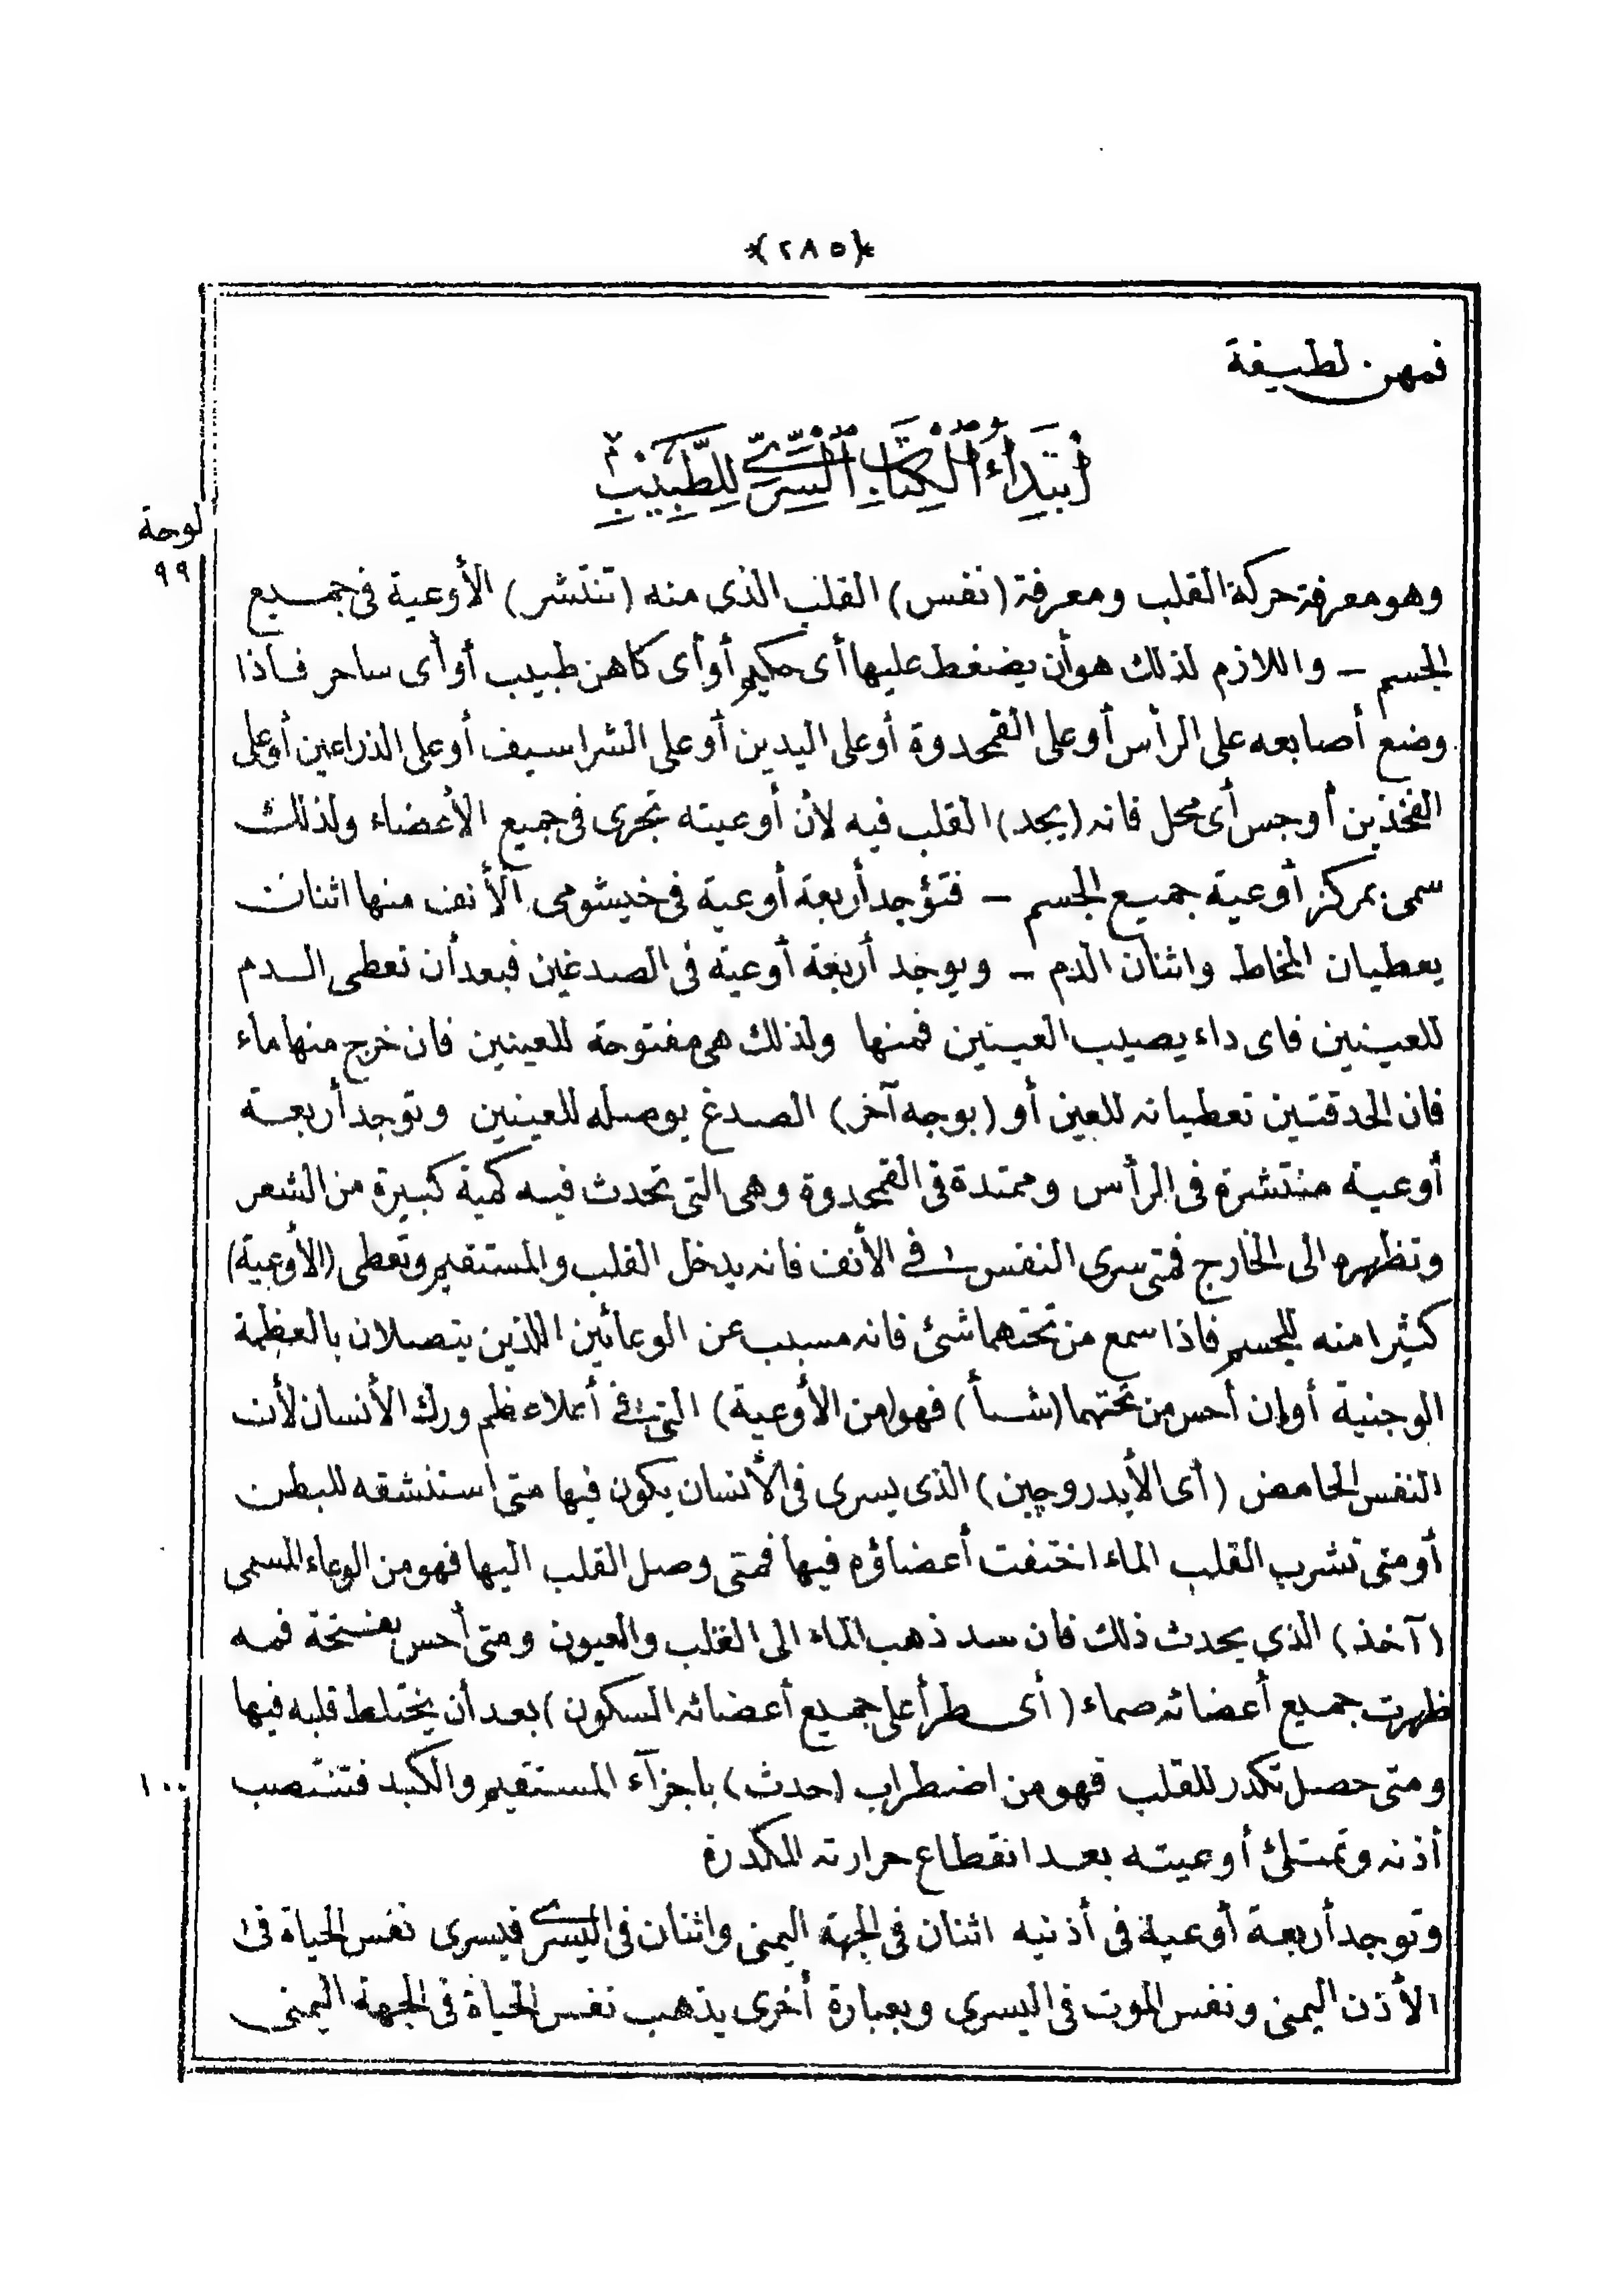 *(٢٨٥)*
فمهن لطيفة
ابتداء الكتاب السري للطبيب
لوحة
٩٩
وهو معرفة حركة القلب ومعرفة (نفس) القلب الذى منه (تنتشر) الأوعية فى جميع
الجسم - واللازم لذلك هو أن يضغط عليها أى حكيم أو أى كاهن طبيب أو أى ساحر فاذا
وضع أصابعه على الرأس أو على القمحدوة أو على اليدين أو على الشراسيف أو على الذراعين أو على
الفخذين أو جس أى محل فانه (يجد) القلب فيه لأن أوعيته تجرى فى جميع الأعضاء ولذلك
سمى بمركز أوعية جميع الجسم - فتؤجد أربعة أوعية فى خيشومى الأنف منها اثنان
يعطيان المخاط واثنان الدم - ويوجد أربعة أوعية فى الصدغين فبعد أن تعطى الدم
للعينين فاى داء يصيب العينين فمنها ولذلك هى مفتوحة للعينين فان خرج منها ماء
فان الحدقتين تعطيانه للعين أو (بوجه آخر) الصدغ يوصله للعينين وتوجد أربعة
أوعية منتشرة فى الرأس وممتدة فى القمحدوة وهى التى تحدث فيه كمية كبيرة من الشعر
وتظهره الى الخارج فمتى سرى النفس فى الأنف فانه يدخل القلب والمستقيم وتعطى (الأوعية)
كثيرا منه للجسم فاذا سمع من تحتهما شئ فانه مسبب عن الوعائين اللذين يتصلان بالعظمة
الوجنية أو إن أحس من تحتهما (شـأ) فهو (من الأوعية) التى فى أعلاء عظم ورك الأنسان لأن
النفس الحامض (أى الأيدروچين) الذى يسرى فى الأنسان يكون فيها متى استنشقه للبطن
أو متى تشرب القلب الماء اختفت أعضاؤه فيها فمتى وصل القلب اليها فهو من الوعاء المسمى
(آخذ) الذي يحدث ذلك فان سد ذهب الماء الى القلب والعيون ومتى أحس بفسخة فمه
ظهرت جميع أعضائه صماء (أى طرأ على جميع أعضائه السكون) بعد أن يختلط قلبه فيها
١٠٠
ومتى حصل تكدر للقلب فهو من اضطراب (حدث) باجزآء المستقيم والكبد فتنتصب
أذنه وتمتلئ أوعيته بعد انقطاع حرارته المكدرة
وتوجد أربعة أوعية فى أذنيه اثنان فى الجهة اليمنى واثنان فى اليسرى فيسرى نفس الحياة فى
الأذن اليمنى ونفس الموت فى اليسرى وبعبارة أخرى يذهب نفس الحياة فى الجهة اليمنى